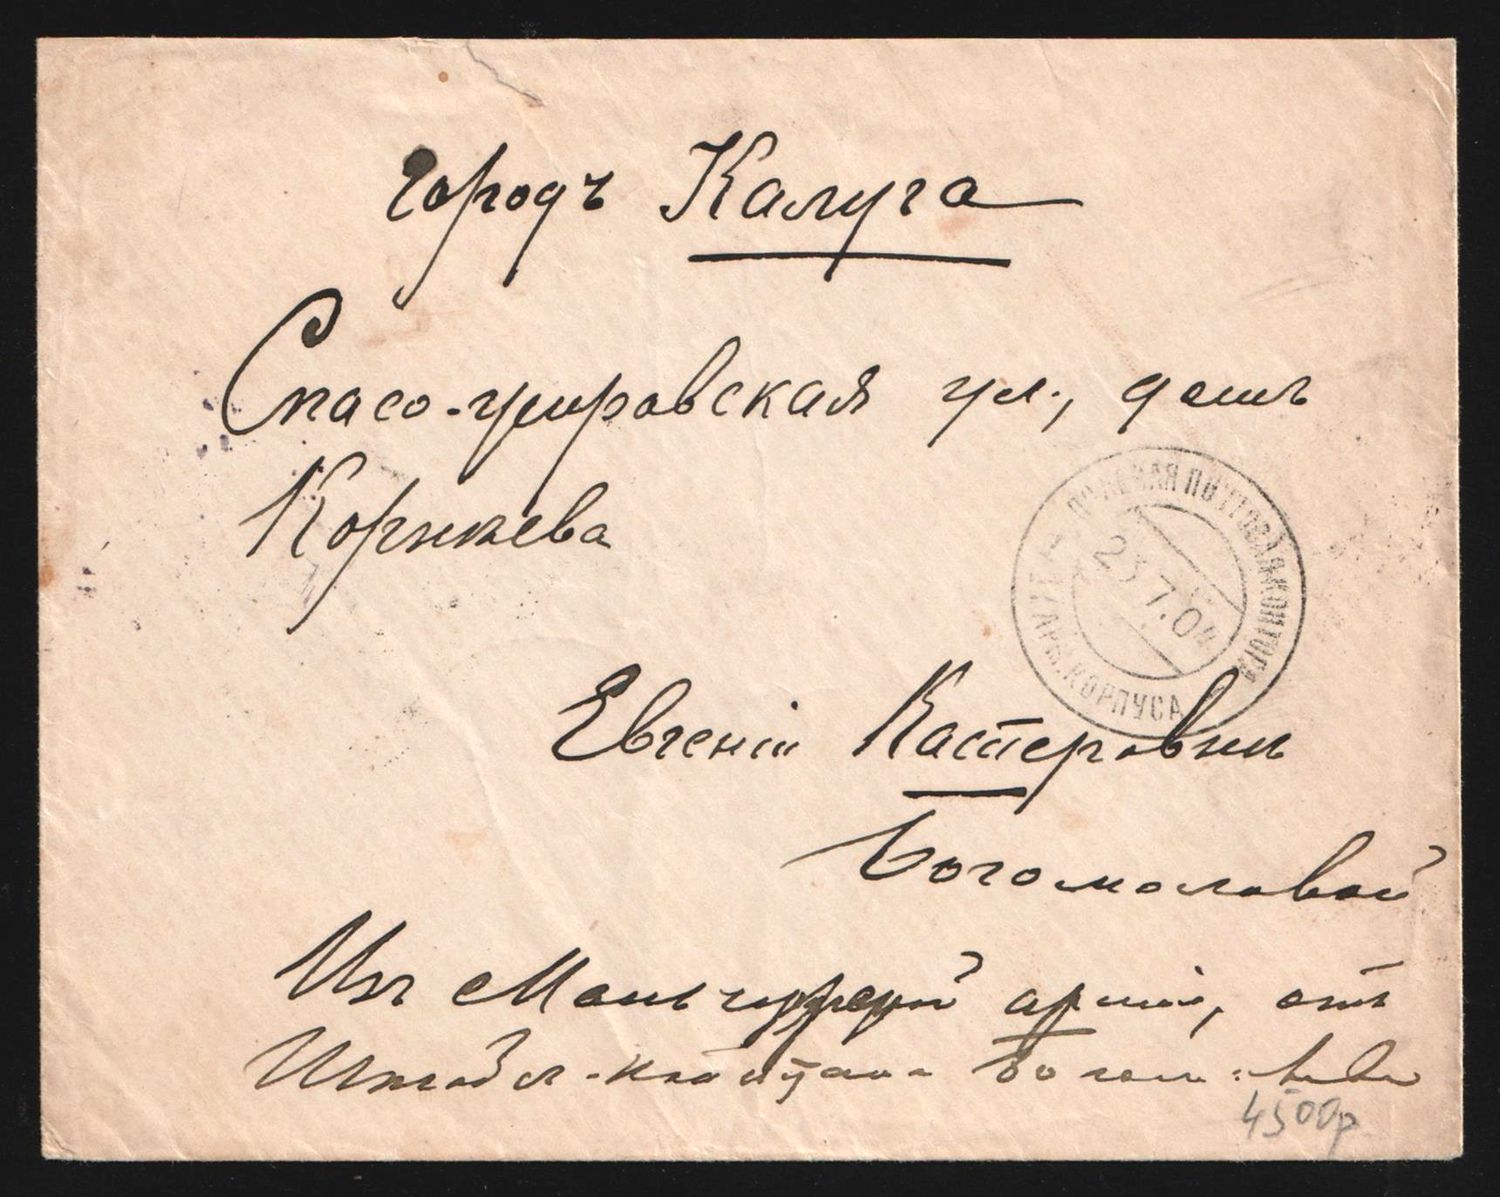 городъ Калуга
Спасо-жировская ул., домъ
Коржнева
ПОЛЕВАЯ ПОЧТОВАЯ КОНТОРА
АРМ. КОРПУСА
23.7.04
Евгеніи Касперовнѣ
Богомоловой
Изъ Маньчжурской арміи, отъ
Штабсъ-капитана Богомолова
4500р